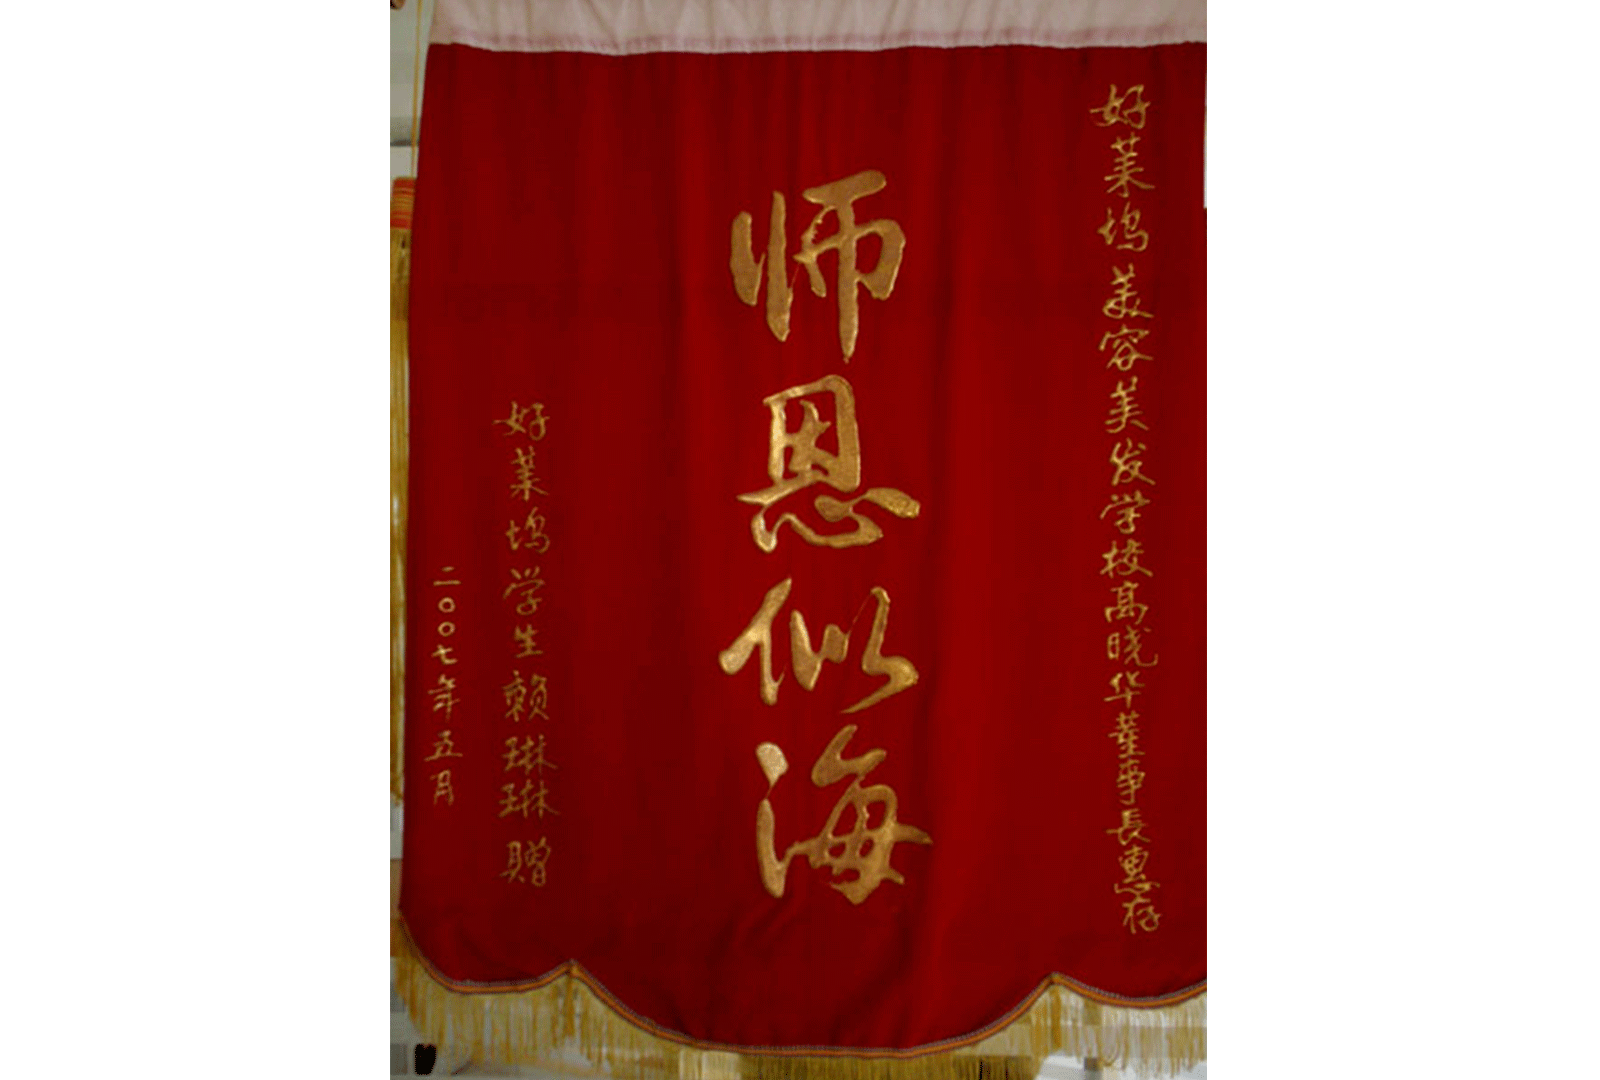 好莱坞美容美发学校高晓华董事長惠存
师恩似海
好莱坞学生赖琳琳赠
二00七年五月